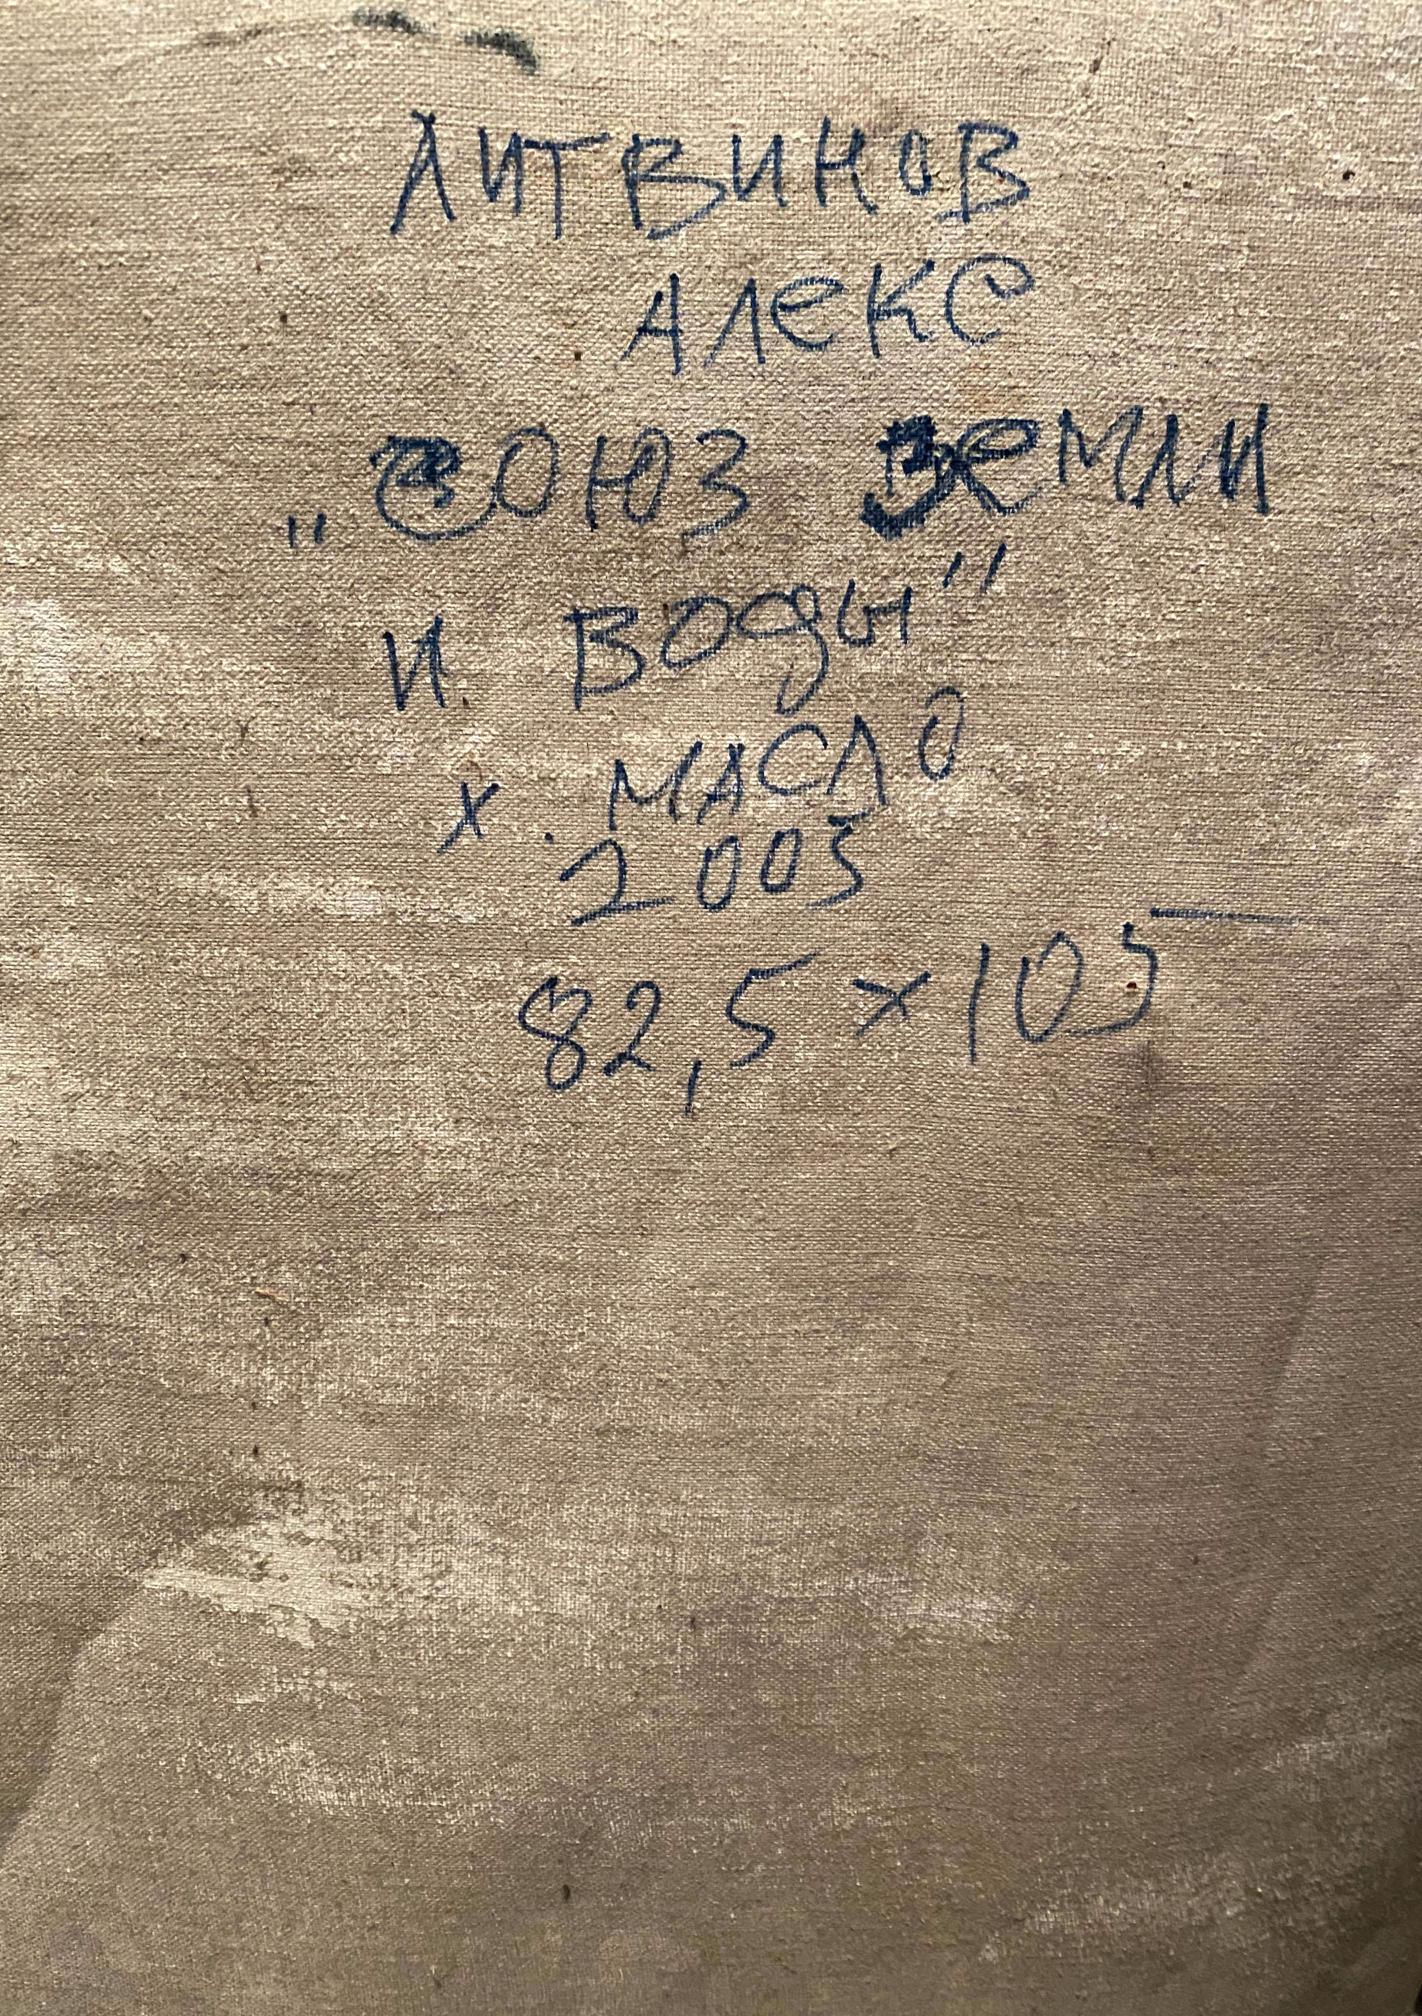 ЛИТВИНОВ
АЛЕКС
„СОЮЗ ЗЕМЛИ
И ВОДЫ"
х. МАСЛО
2003
82,5 × 105